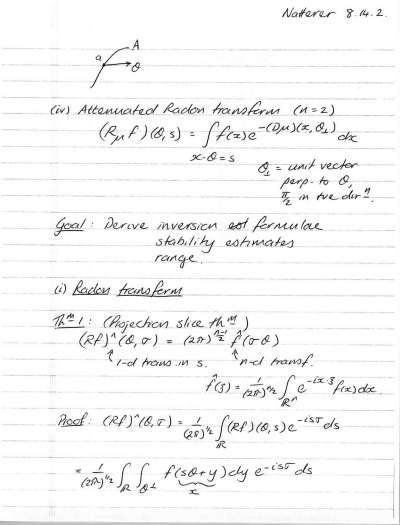 Natterer 8.14.2.
a A
θ
(iv) Attenuated Radon transform (n=2)
(Rμ f)(θ,s) = ∫ f(x) e^{-(Dμ)(x,θ⊥)} dx
x·θ=s
θ⊥ = unit vector
perp. to θ,
π/2 in +ve dirⁿ.
Goal: Derive inversion formulae
stability estimates
range.
(i) Radon transform
Thᵐ 1: (Projection slice thᵐ)
(Rf)^(θ,σ) = (2π)^{(n-1)/2} f̂(σθ)
↑ 1-d trans. in s. ↑ n-d transf.
f̂(ξ) = 1/(2π)^{n/2} ∫_{ℝⁿ} e^{-ix·ξ} f(x) dx.
Proof: (Rf)^(θ,σ) = 1/(2π)^{1/2} ∫_ℝ (Rf)(θ,s) e^{-isσ} ds
= 1/(2π)^{1/2} ∫_ℝ ∫_{θ⊥} f(sθ+y) dy e^{-isσ} ds
x